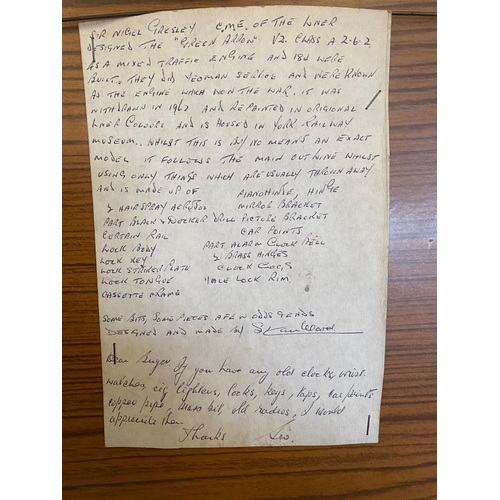 SIR NIGEL GRESLEY C.M.E. OF THE LNER
DESIGNED THE "GREEN ARROW" V2. CLASS A 2-6-2
AS A MIXED TRAFFIC ENGINE AND 184 WERE
BUILT. THEY DID YEOMAN SERVICE AND WERE KNOWN
AS THE ENGINE WHICH WON THE WAR. IT WAS
WITHDRAWN IN 1962 AND REPAINTED IN ORIGIONAL
LNER COLOURS AND IS HOUSED IN YORK RAILWAY
MUSEUM.. WHILST THIS IS BY NO MEANS AN EXACT
MODEL IT FOLLOWS THE MAIN OUTLINE WHILST
USING ONLY THINGS WHICH ARE USUALLY THROWN AWAY
AND IS MADE UP OF PIANO HINGE, HINGE
2 HAIRSPRAY AEROSOL MIRROR BRACKET
PART BLACK & DECKER DRILL PICTURE BRACKET
CURTAIN RAIL CAR POINTS
LOCK BODY PART ALARM CLOCK BELL
LOCK KEY 2 BRASS HINGES
LOCK STRIKER PLATE CLOCK COGS
LOCK TONGUE YALE LOCK RIM
CASSETTE FRAME
SOME BITS, SOME PIECES A FEW ODDS & ENDS
DESIGNED AND MADE BY
Dear Buyer If you have any old clocks, wrist
watches, cig lighters, locks, keys, taps, car points
copper pipe, brass bit, old radios, I would
appreciate them
Thanks